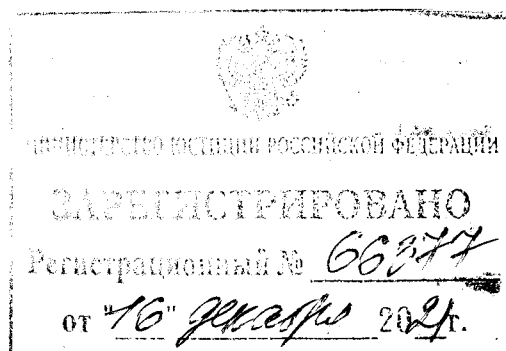 МИНИСТЕРСТВО ЮСТИЦИИ РОССИЙСКОЙ ФЕДЕРАЦИИ
ЗАРЕГИСТРИРОВАНО
Регистрационный № 66377
от "16" декабря 2021 г.